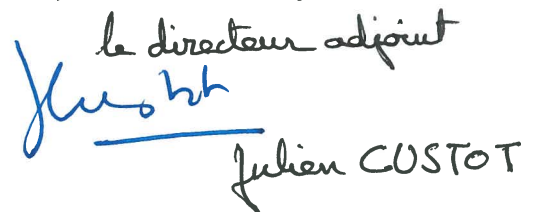 le directeur adjoint
Julien CUSTOT